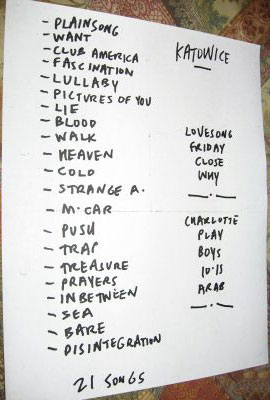 - PLAINSONG
- WANT
- CLUB AMERICA
- FASCINATION
- LULLABY
- PICTURES OF YOU
- LIE
- BLOOD
- WALK
- HEAVEN
- COLD
- STRANGE A.
- M. CAR
- PUSH
- TRAP
- TREASURE
- PRAYERS
- INBETWEEN
- SEA
- BARE
- DISINTEGRATION
21 SONGS
KATOWICE
LOVESONG
FRIDAY
CLOSE
WHY
CHARLOTTE
PLAY
BOYS
10.15
ARAB